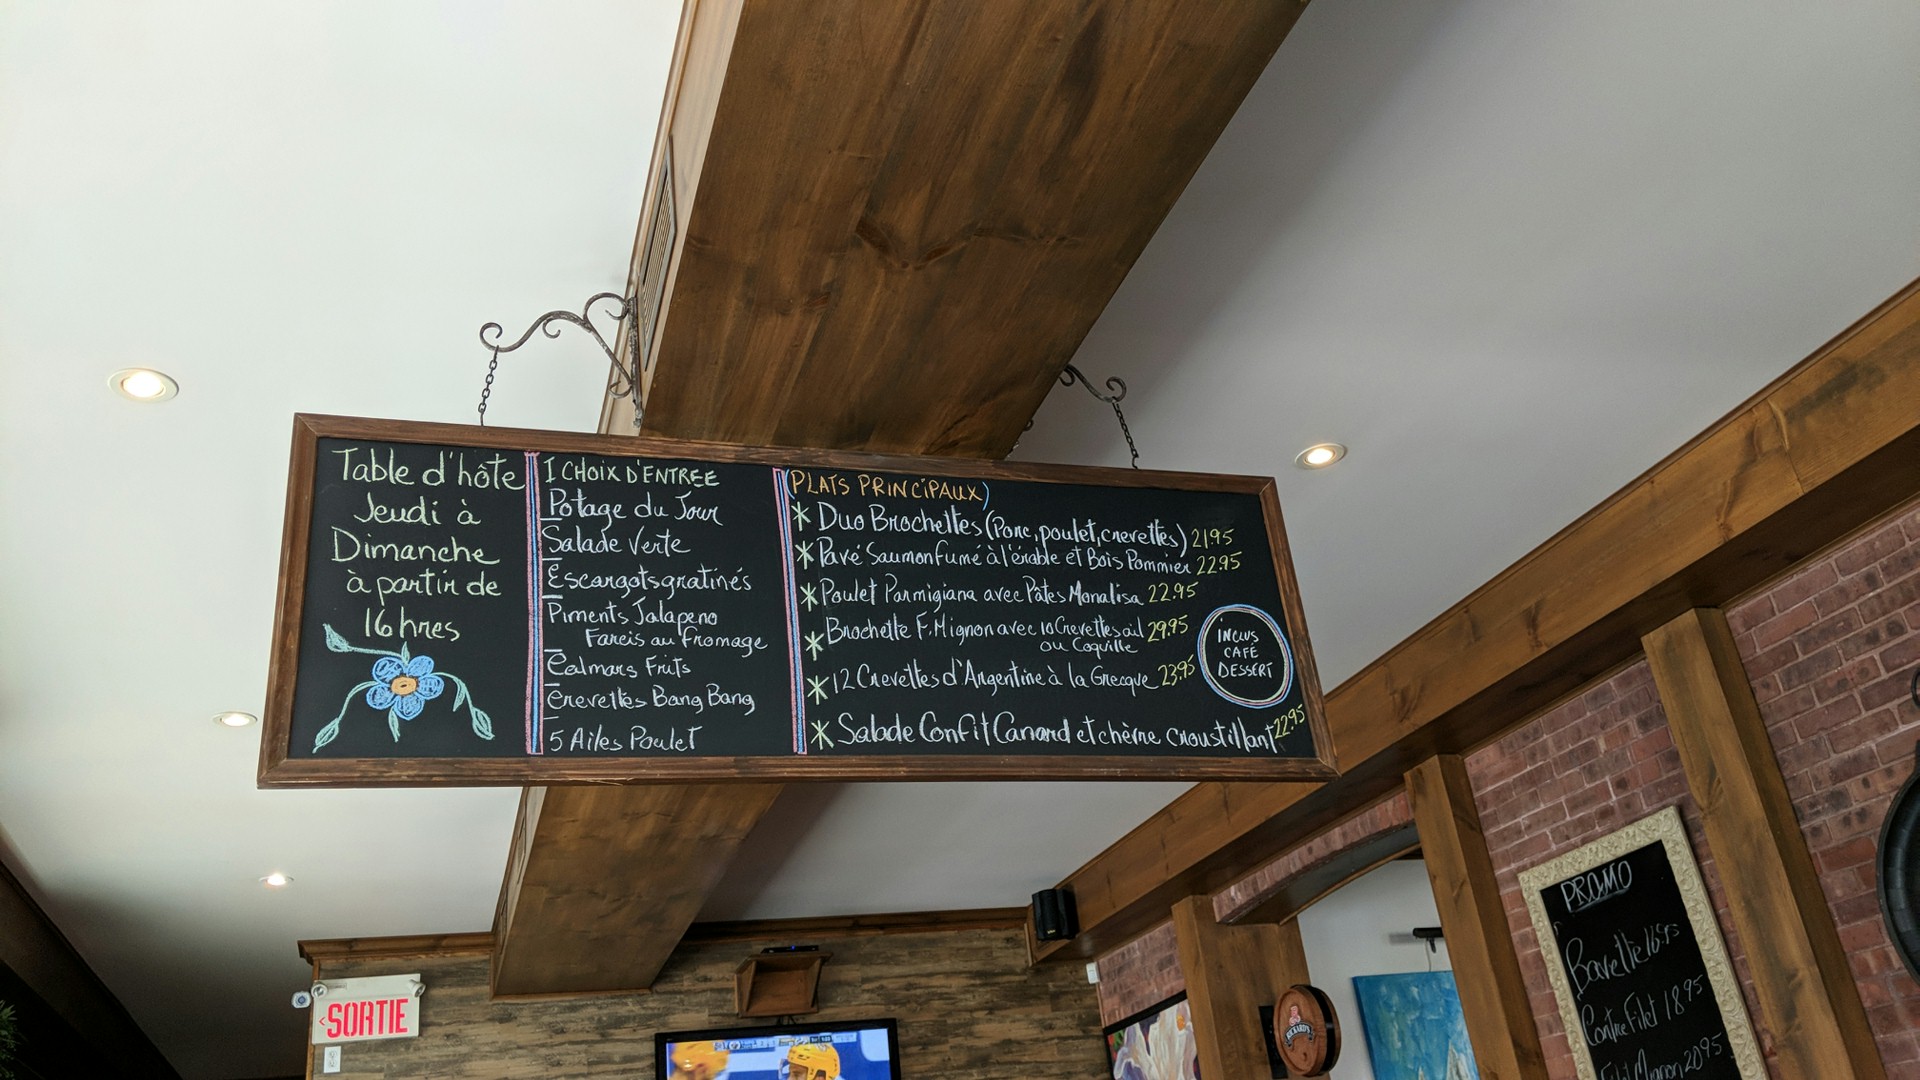 Table d'hôte
Jeudi à
Dimanche
à partir de
16 hres
1 CHOIX D'ENTREE
Potage du Jour
Salade Verte
Escargots gratinés
Piments Jalapeno
Farcis au fromage
Calmars Frits
Crevettes Bang Bang
5 Ailes Poulet
(PLATS PRINCIPAUX)
* Duo Brochettes (Porc, poulet, crevettes) 21.95
* Pavé Saumon fumé à l'érable et Bois Pommier 22.95
* Poulet Parmigiana avec Pâtes Monalisa 22.95
* Brochette F. Mignon avec 10 Crevettes ail 29.95
ou Coquille
* 12 Crevettes d'Argentine à la Grecque 23.95
* Salade Confit Canard et chèvre croustillant 22.95
INCLUS
CAFÉ
DESSERT
PROMO
Bavette 16.95
Contre Filet 18.95
Filet Mignon 20.95
<SORTIE
RICKARD'S